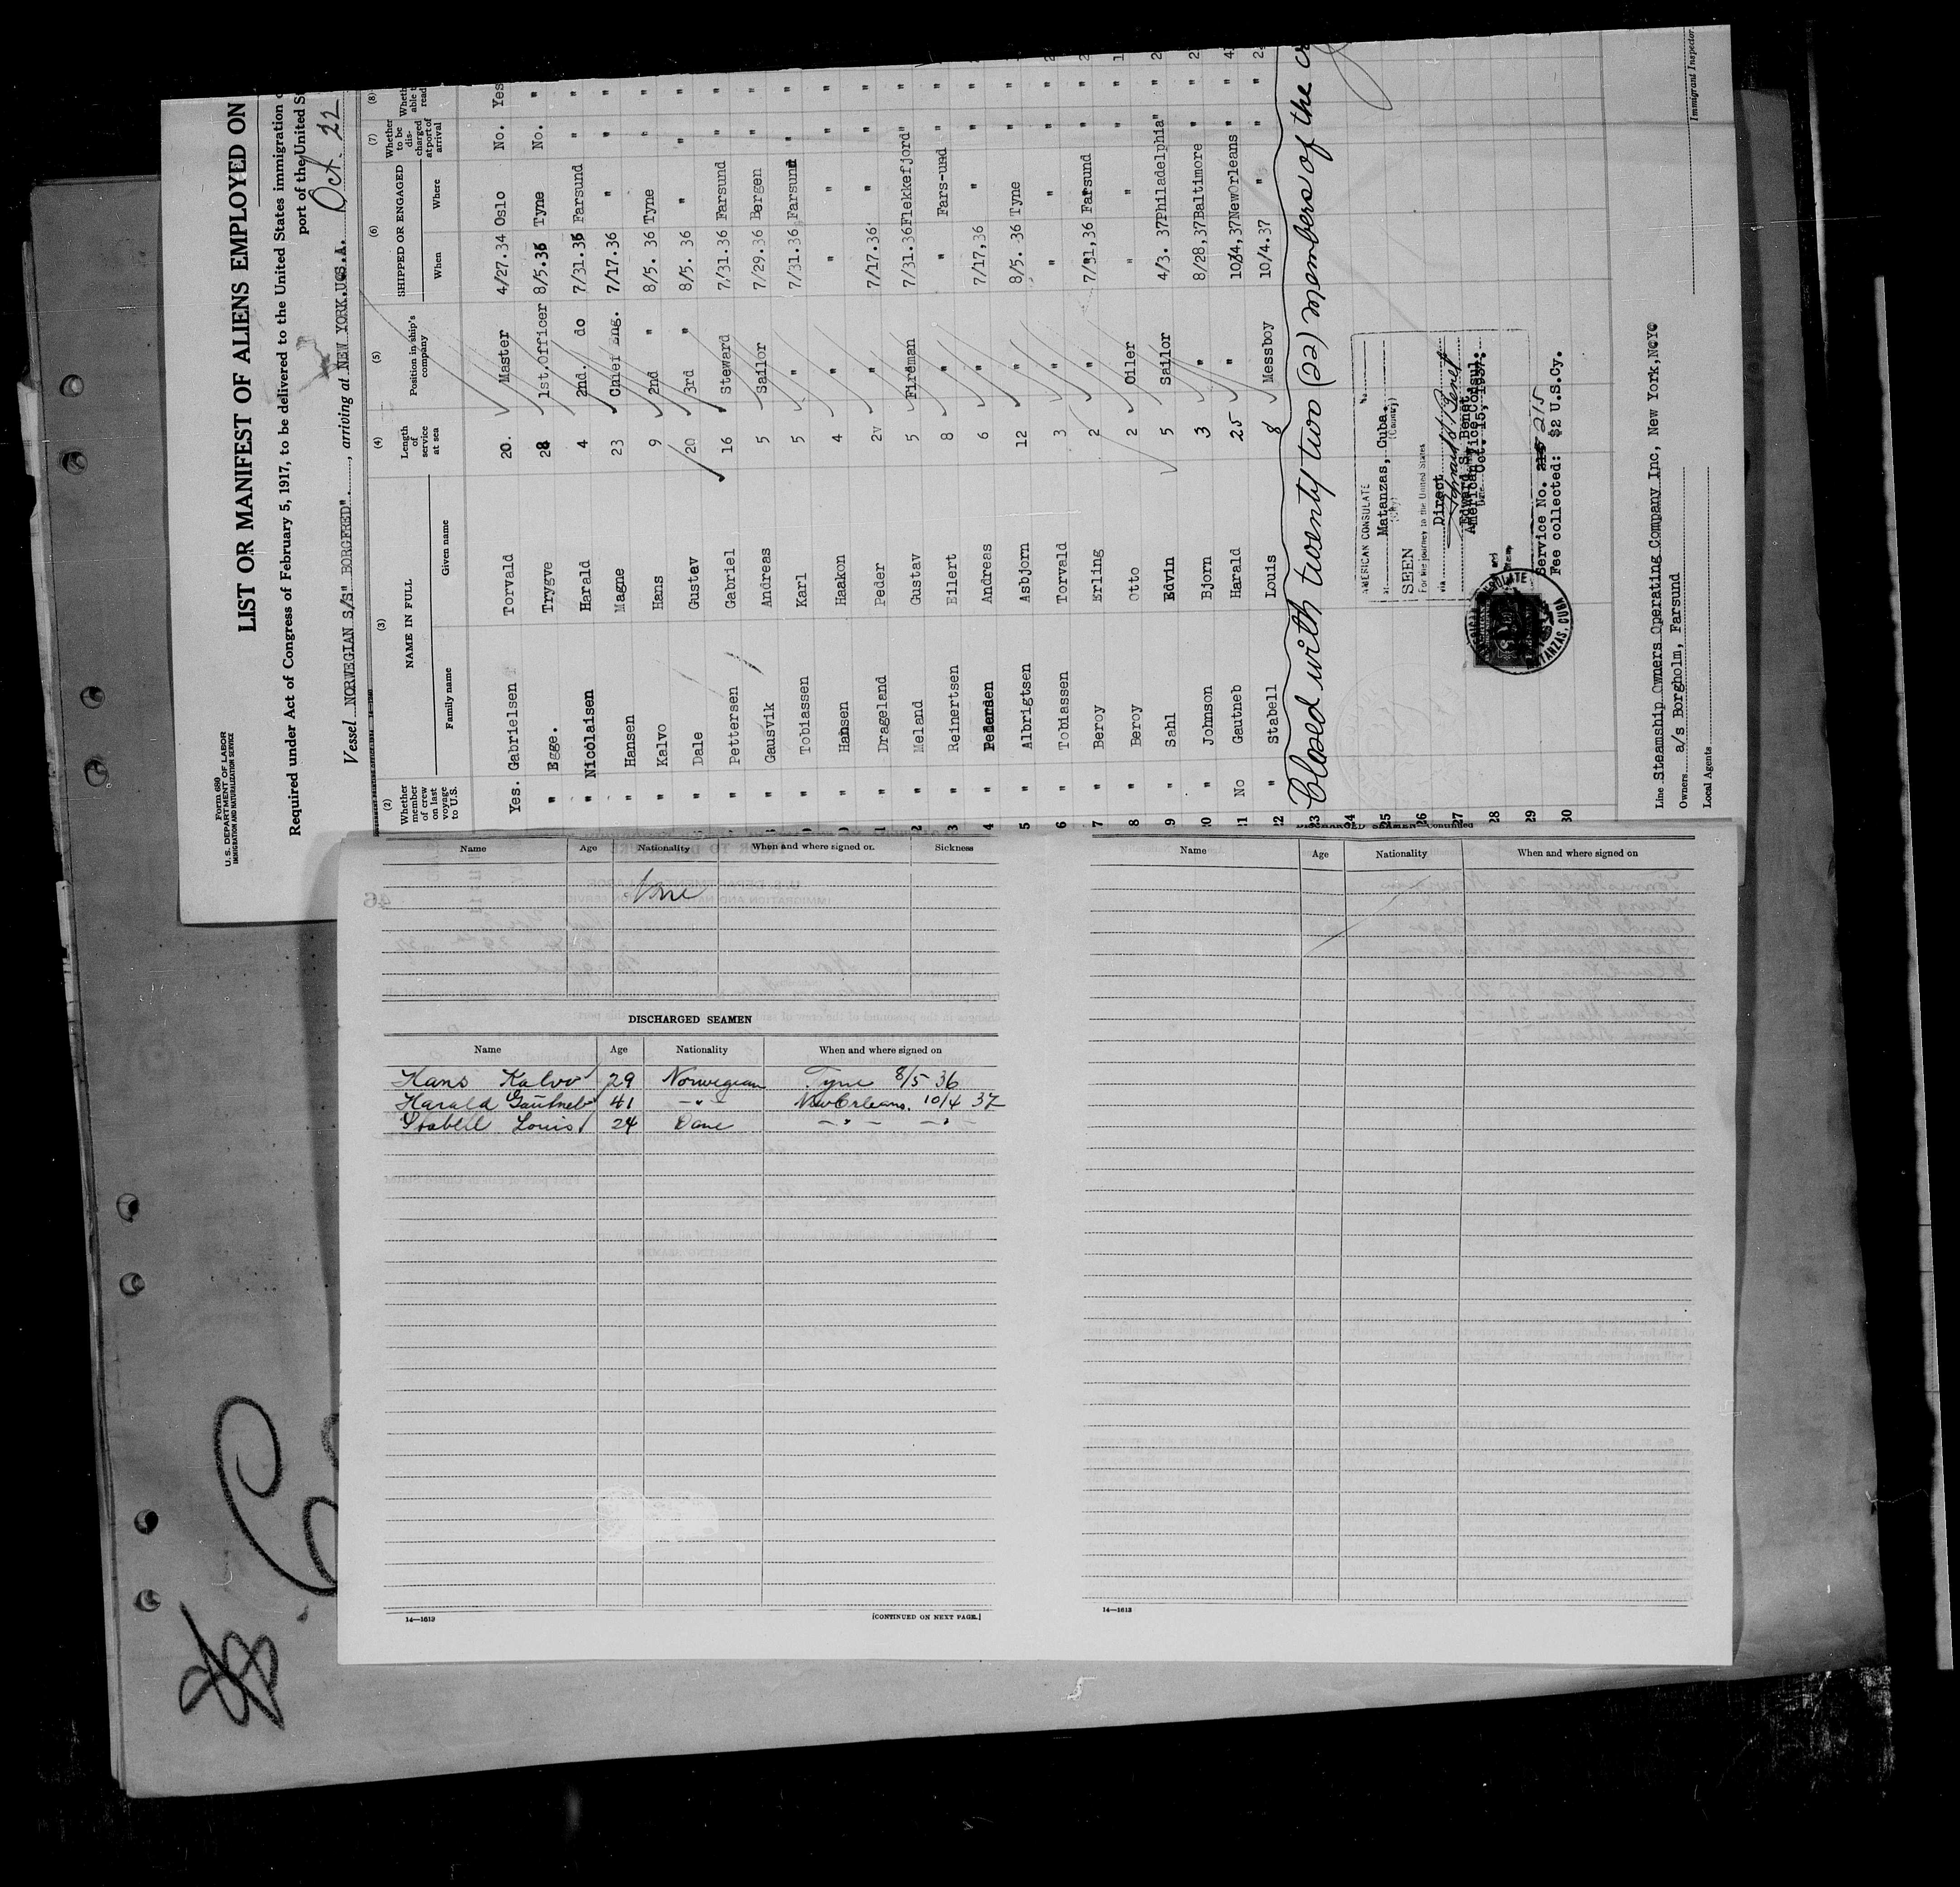 Form 680
U. S. DEPARTMENT OF LABOR
IMMIGRATION AND NATURALIZATION SERVICE
LIST OR MANIFEST OF ALIENS EMPLOYED ON
Required under Act of Congress of February 5, 1917, to be delivered to the United States immigration
port of the United
Vessel NORWEGIAN S/S" BORGFRED". , arriving at NEW YORK.U.S.A. Oct. 22
(2) (3) (4) (5) (6) (7) (8)
Whether member of crew on last voyage to U.S. NAME IN FULL Family name Given name Length of service at sea Position in ship's company SHIPPED OR ENGAGED When Where Whether to be discharged at port of arrival
Yes. Gabrielsen Torvald 20. Master 4/27.34 Oslo No. Yes
" Egge. Trygve 28 1st.Officer 8/5.36 Tyne No. "
" Nicolaisen Harald 4 2nd. do 7/31.36 Farsund " "
" Hansen Magne 23 Chief Eng. 7/17.36 " " "
" Kalvo Hans 9 2nd " 8/5. 36 Tyne " "
" Dale Gustav 20 3rd " 8/5. 36 " " "
" Pettersen Gabriel 16 Steward 7/31.36 Farsund " "
" Gausvik Andreas 5 Sailor 7/29.36 Bergen " "
" Tobiassen Karl 5 " 7/31.36 Farsund " "
" Hansen Haakon 4 " " " " "
" Drageland Peder 2 " 7/17.36 " " "
2 " Meland Gustav 5 Fireman 7/31.36 Flekkefjord" "
3 " Reinertsen Eilert 8 " " Fars-und " "
4 " Pedersen Andreas 6 " 7/17,36 " " "
5 " Albrigtsen Asbjorn 12 " 8/5. 36 Tyne " "
6 " Tobiassen Torvald 3 " " " " "
7 " Beroy Erling 2 " 7/31,36 Farsund " "
8 " Beroy Otto 2 Oiler " " " "
9 " Sahl Edvin 5 Sailor 4/3. 37 Philadelphia" "
20 " Johnson Bjorn 3 " 8/28,37 Baltimore " "
21 No Gautneb Harald 25 " 10/4,37 NewOrleans " "
22 " Stabell Louis 8 Messboy 10/4.37 " " "
23 Closed with twenty two (22) members of the
24
25
26
27
28
29
30
AMERICAN CONSULATE
at Matanzas, Cuba.
(City) (Country)
SEEN
For the journey to the United States
via Direct
Edward S. Benet,
American Vice Consul.
Date Oct. 15, 1937.
Service No. 215
Fee collected: $2 U.S.Cy.
MATANZAS, CUBA
Line Steamship Owners Operating Company Inc, New York,N.Y.
Owners a/s Borgholm, Farsund
Local Agents
Immigrant Inspector.
Name Age Nationality When and where signed on Sickness
None
DISCHARGED SEAMEN
Name Age Nationality When and where signed on
Hans Kalvo 29 Norwegian Tyne 8/5 36
Harald Gautneb 41 -"- New Orleans. 10/4 37
Stabell Louis 24 Dane -"- -"-
14—1613 [CONTINUED ON NEXT PAGE.]
DISCHARGED SEAMEN—Continued
Name Age Nationality When and where signed on
14—1613